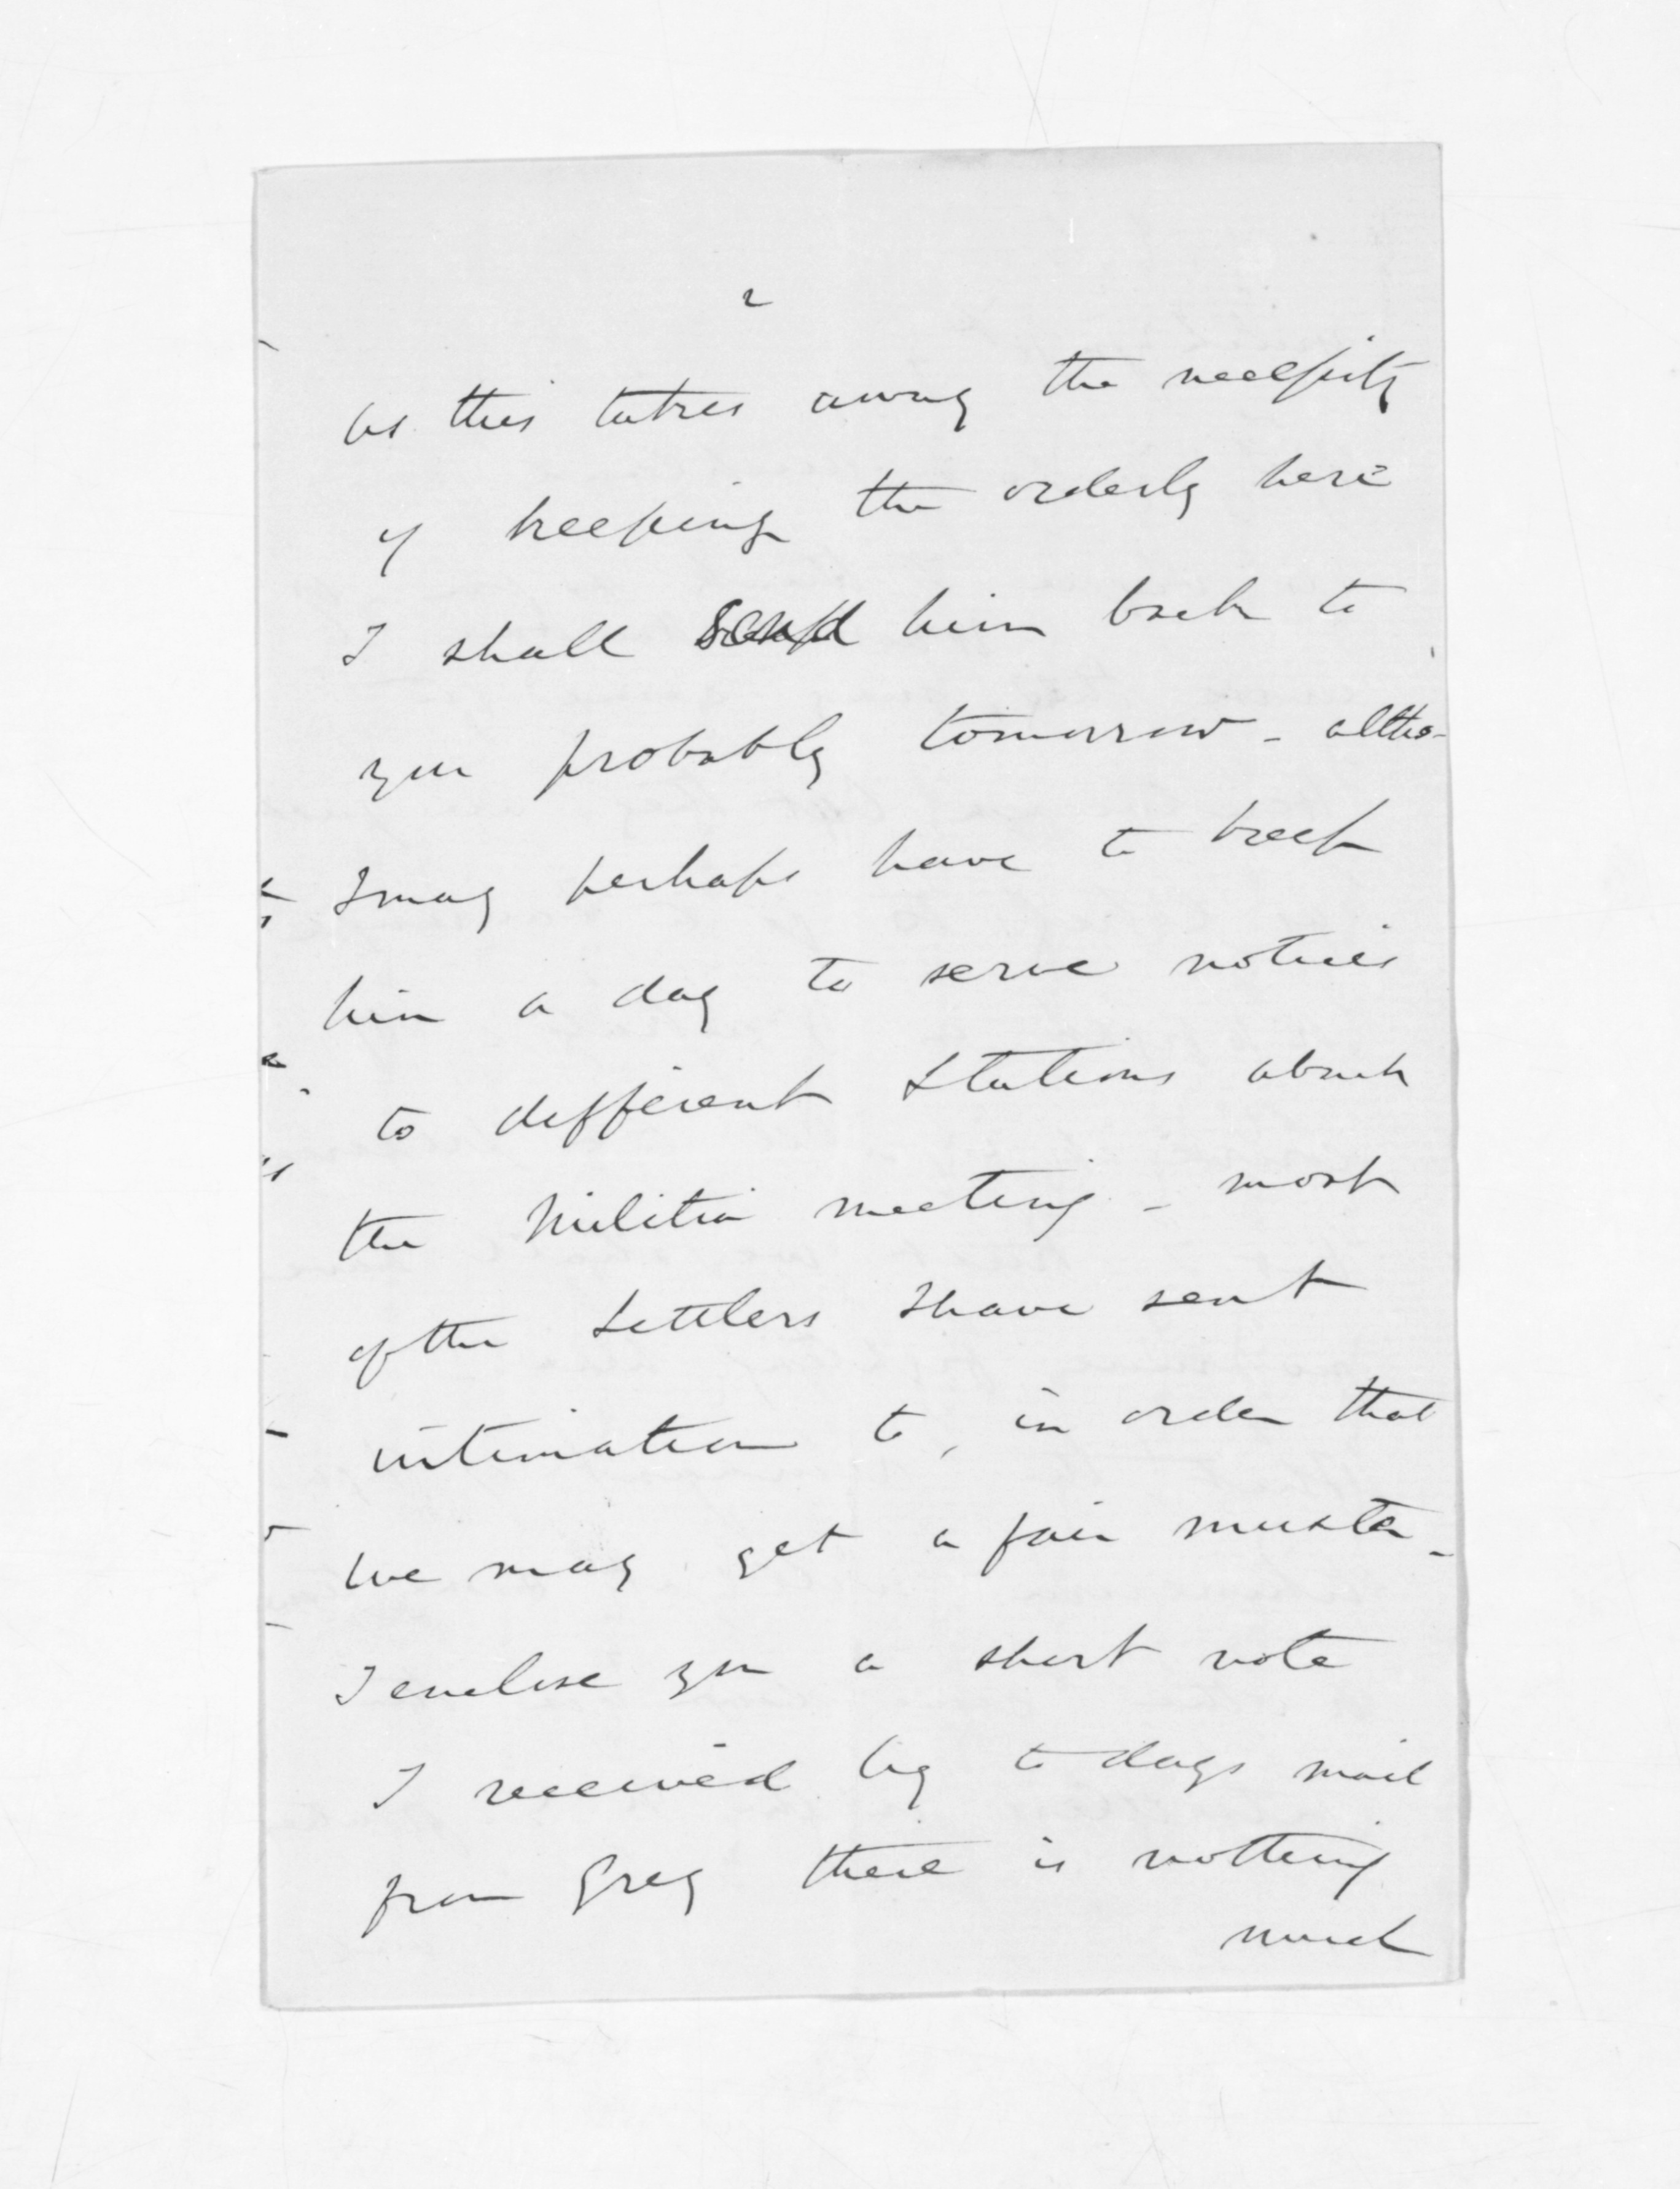 2
as this takes away the necessity
of keeping the orderly here
I shall send him back to
you probably tomorrow - altho-
I may perhaps have to keep
him a day to serve notices
to different Stations about
the Militia meeting - most
of the Settlers I have sent
intimation to, in order that
we may get a fair muster -
I enclose you a short note
I received by to days mail
from Grey there is nothing
much